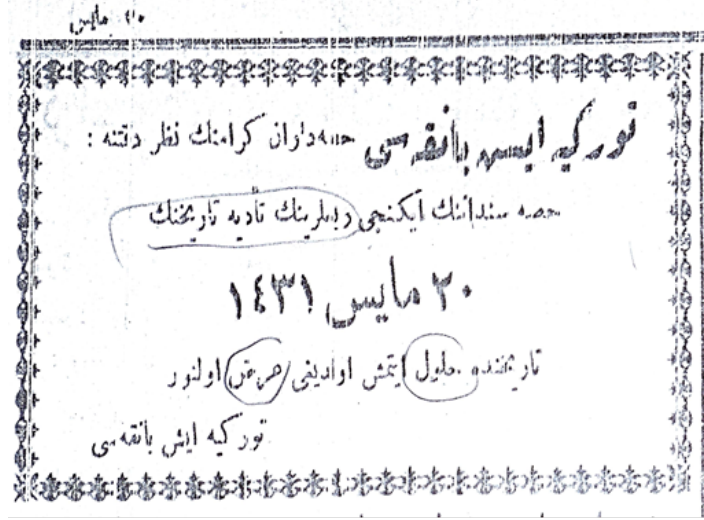 ٢٠ مايس
توركيه ايش بانقه‌سى حصه‌داران كرامنك نظر دقتنه :
حصه سنداتنك ايكنجى ربعلرينك تأديه تاريخنك
٢٠ مايس ١٤٣١
تاريخنده حلول ايتمش اولديغى عرض اولنور
توركيه ايش بانقه‌سى